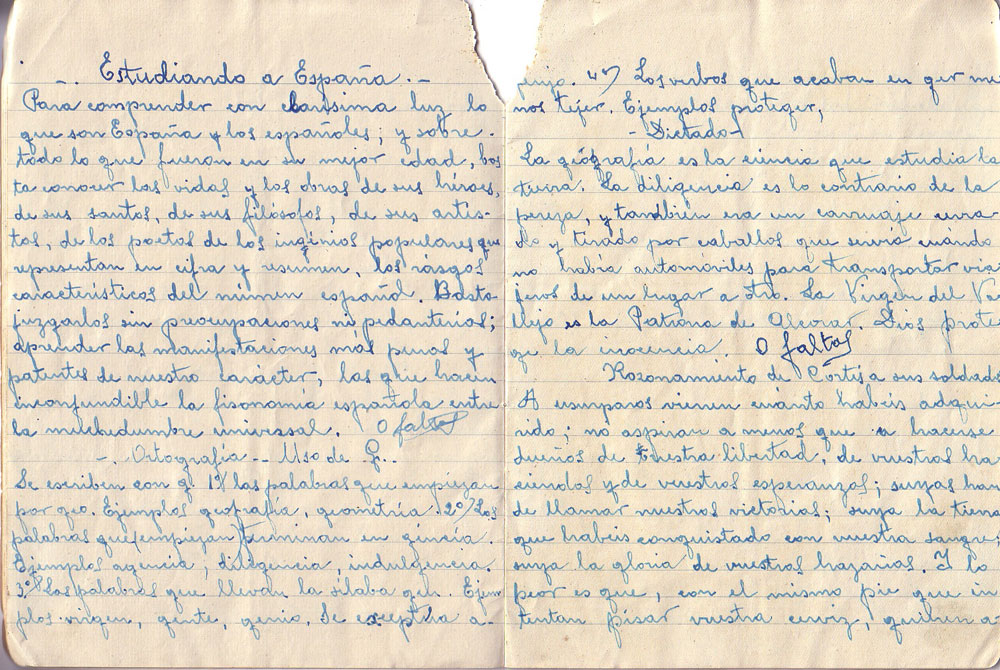 -. Estudiando a España. -
Para comprender con clarísima luz lo
que son España y los españoles; y sobre.
todo lo que fueron en su mejor edad, bas
ta conocer las vidas y las obras de sus héroes,
de sus santos, de sus filósofos, de sus artis-
tas, de los poetas de los ingénios populares que
representan en cifra y resúmen, los rásgos
característicos del númen español. Basta
juzgarlos sin preocupaciones ni pedanterías;
aprender las manifestaciones mas puras y
patentes de nuestro carácter, las que hacen
inconfundible la fisonomía española entre
la muchedumbre universal. O faltas
-. Ortografía -- Uso de G..
Se escriben con g 1º las palabras que empiezan
por geo. Ejemplos geografía, geometría. 2º/ Las
palabras que (empiezan) terminan en gencia.
Ejemplos agencia, diligencia, indulgencia.
3º/ Las palabras que llevan la sílaba gen. Ejem
plos virgen, gente, genio. Se exceptua a-
enjo. 4º/ Los verbos que acaban en ger me
nos tejer. Ejemplos proteger,
- Dictado -
La geografía es la ciencia que estudia la
tierra. La diligencia es lo contrario de la
pereza, y también era un carruaje cerra
do y tirado por caballos que servía cuándo
no había automóviles para transportar via
jeros de un lugar a otro. La Virgen del Va
llejo es la Patrona de Alcozar. Dios prote
ge la inocencia.. O faltas
Razonamiento de Cortés a sus soldados
A usurparos vienen cuánto habéis adqui
rido; no aspiran a menos que a hacerse
dueños de vuestra libertad, de vuestras ha
ciendas y de vuestras esperanzas; suyas han
de llamar nuestras victorias; suya la tierra
que habéis conquistado con vuestra sangre;
suya la gloria de vuestras hazañas. Y lo
peor es que, con el mismo pie que in
tentan pisar vuestra cerviz, quieren a-